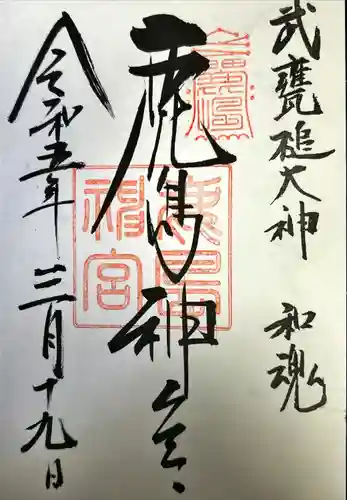 武甕槌大神　和魂
鹿島神宮
令和五年　三月十九日
鹿島
神宮